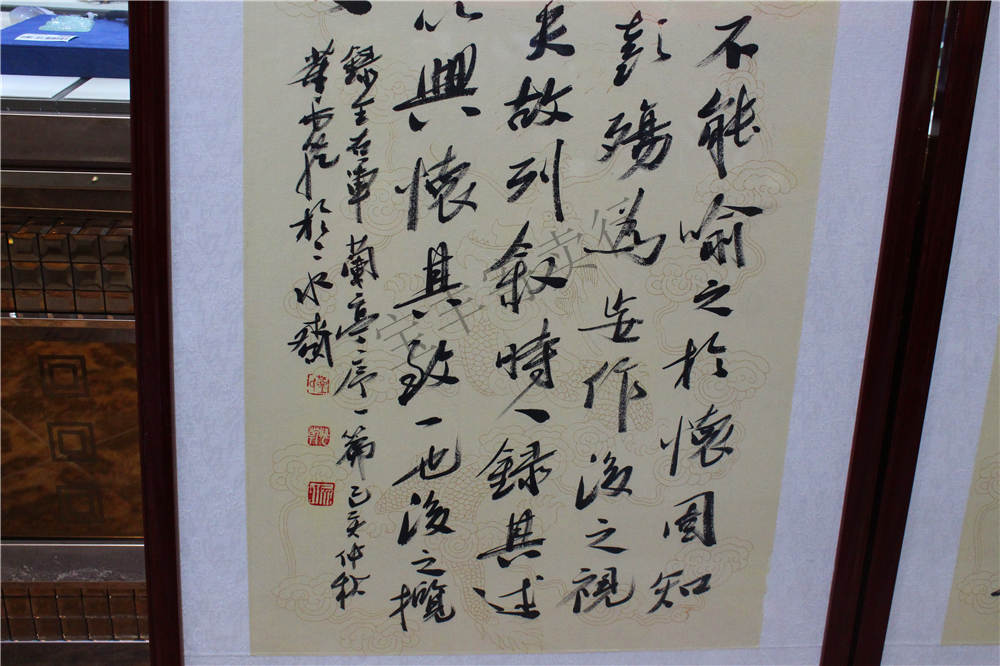 不能喻之於懷固知
彭殤爲妄作後之視
夫故列敘時録其述
以興懷其致一也後之攬
録王右軍蘭亭序一篇己亥仲秋
於水齋